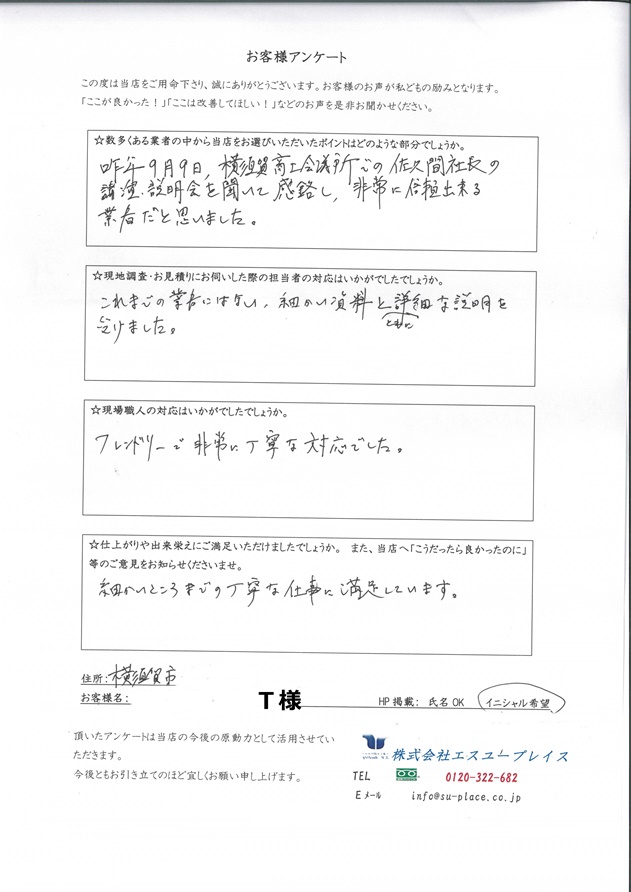 お客様アンケート
この度は当店をご用命下さり、誠にありがとうございます。お客様のお声が私どもの励みとなります。
「ここが良かった!」「ここは改善してほしい!」などのお声を是非お聞かせください。
☆数多くある業者の中から当店をお選びいただいたポイントはどのような部分でしょうか。
昨年9月9日、横須賀商工会議所での佐久間社長の
講演、説明会を聞いて感銘し、非常に信頼出来る
業者だと思いました。
☆現地調査・お見積りにお伺いした際の担当者の対応はいかがでしたでしょうか。
これまでの業者にはない、細かい資料と詳細な説明を
ともに
受けました。
☆現場職人の対応はいかがでしたでしょうか。
フレンドリーで非常に丁寧な対応でした。
☆仕上がりや出来栄えにご満足いただけましたでしょうか。 また、当店へ「こうだったら良かったのに」
等のご意見をお知らせくださいませ。
細かいところまでの丁寧な仕事に満足しています。
住所:横須賀市
お客様名: T様 HP掲載: 氏名OK イニシャル希望
頂いたアンケートは当店の今後の原動力として活用させてい
ただきます。
今後ともお引き立てのほど宜しくお願い申し上げます。
株式会社エスユープレイス
TEL 0120-322-682
Eメール info@su-place.co.jp